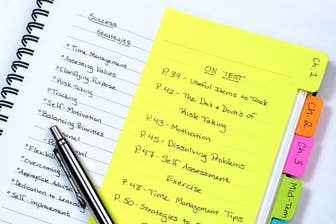 Success
Strategies
Time Management
Assessing Values
Clarifying Purpose
Risk Taking
Tracking
Self-Motivation
Balancing Priorities
Personal
Personal
Flexible
Overcoming
Dedication to
Self-improvement
ON TEST
P.39 - Useful Items to Track
P.42 - The Do's & Don'ts of
Risk Taking
P.43 - Motivation
P.45 - Dissolving Problems
P.47 - Self Assessment
Exercise
P.48 - Time Management Tips
P.50 - Strategies to
Ch 1
Ch. 2
Ch 3
Mid-Term